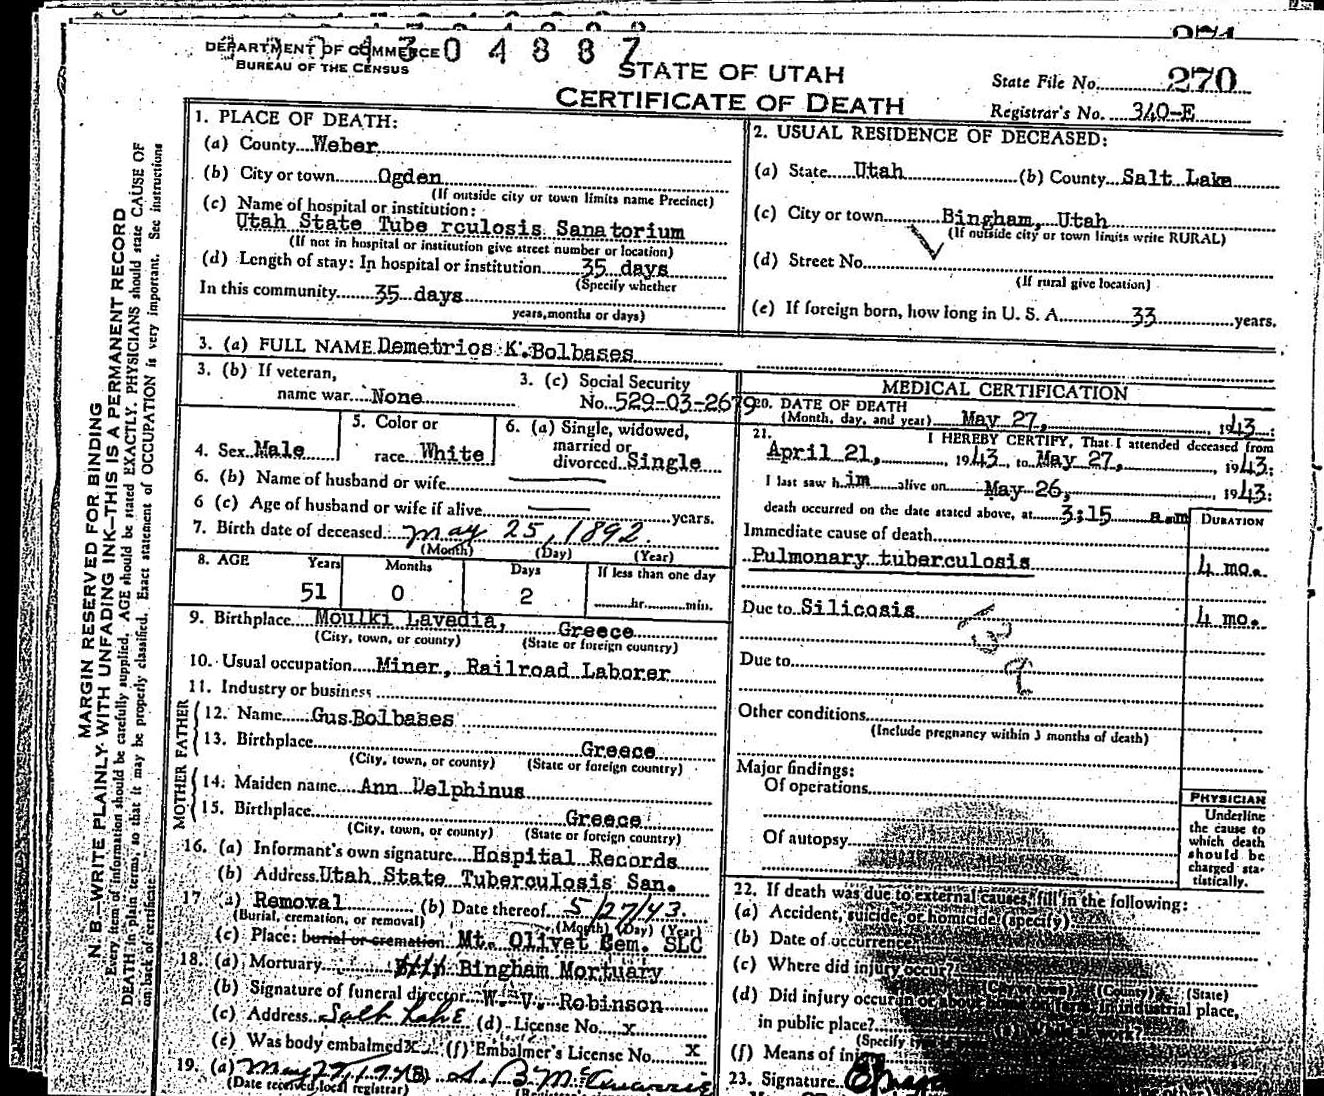 DEPARTMENT OF COMMERCE
BUREAU OF THE CENSUS
4304887
STATE OF UTAH
CERTIFICATE OF DEATH
State File No. 270
Registrar's No. 340-E
MARGIN RESERVED FOR BINDING
N. B.—WRITE PLAINLY WITH UNFADING INK—THIS IS A PERMANENT RECORD
Every item of information should be carefully supplied. AGE should be stated EXACTLY. PHYSICIANS should state CAUSE OF
DEATH in plain terms, so that it may be properly classified. Exact statement of OCCUPATION is very important. See instructions
on back of certificate.
1. PLACE OF DEATH:
(a) County Weber
(b) City or town Ogden
(If outside city or town limits name Precinct)
(c) Name of hospital or institution:
Utah State Tube rculosis Sanatorium
(If not in hospital or institution give street number or location)
(d) Length of stay: In hospital or institution 35 days
(Specify whether
In this community 35 days
years, months or days)
2. USUAL RESIDENCE OF DECEASED:
(a) State Utah (b) County Salt Lake
(c) City or town Bingham, Utah
(If outside city or town limits write RURAL)
(d) Street No.
(If rural give location)
(e) If foreign born, how long in U. S. A. 33 years.
3. (a) FULL NAME Demetrios K. Bolbases
3. (b) If veteran, name war None
3. (c) Social Security No. 529-03-2679
4. Sex Male
5. Color or race White
6. (a) Single, widowed, married or divorced Single
6. (b) Name of husband or wife
6 (c) Age of husband or wife if alive years.
7. Birth date of deceased May 25, 1892.
(Month) (Day) (Year)
8. AGE Years Months Days If less than one day
51 0 2 hr. min.
9. Birthplace Moulki Lavadia, Greece
(City, town, or county) (State or foreign country)
10. Usual occupation Miner, Railroad Laborer
11. Industry or business
FATHER
12. Name Gus Bolbases
13. Birthplace Greece
(City, town, or county) (State or foreign country)
MOTHER
14. Maiden name Ann Delphinus
15. Birthplace Greece
(City, town, or county) (State or foreign country)
16. (a) Informant's own signature Hospital Records
(b) Address Utah State Tuberculosis San.
17 a) Removal (b) Date thereof 5/27/43.
(Burial, cremation, or removal) (Month) (Day) (Year)
(c) Place: burial or cremation Mt. Olivet Cem. SLC
18. (a) Mortuary Bingham Mortuary
(b) Signature of funeral director W. V. Robinson
(c) Address Salt Lake (d) License No. x
(e) Was body embalmed X (f) Embalmer's License No. X
19. (a) May 27, 19 (B)
(Date received local registrar)
MEDICAL CERTIFICATION
20. DATE OF DEATH
(Month, day, and year) May 27, 1943
21. I HEREBY CERTIFY, That I attended deceased from
April 21, 1943, to May 27, 1943:
I last saw h im alive on May 26, 1943:
death occurred on the date stated above, at 3:15 a.m
DURATION
Immediate cause of death
Pulmonary tuberculosis 4 mo.
Due to Silicosis 4 mo.
Due to
Other conditions
(Include pregnancy within 3 months of death)
Major findings:
Of operations
Of autopsy
PHYSICIAN
Underline
the cause to
which death
should be
charged sta-
tistically.
22. If death was due to external causes, fill in the following:
(a) Accident, suicide, or homicide (specify)
(b) Date of occurrence
(c) Where did injury occur?
(City or town) (County) (State)
(d) Did injury occur in or about home, on farm, in industrial place,
in public place?
(Specify
(f) Means of
23. Signature